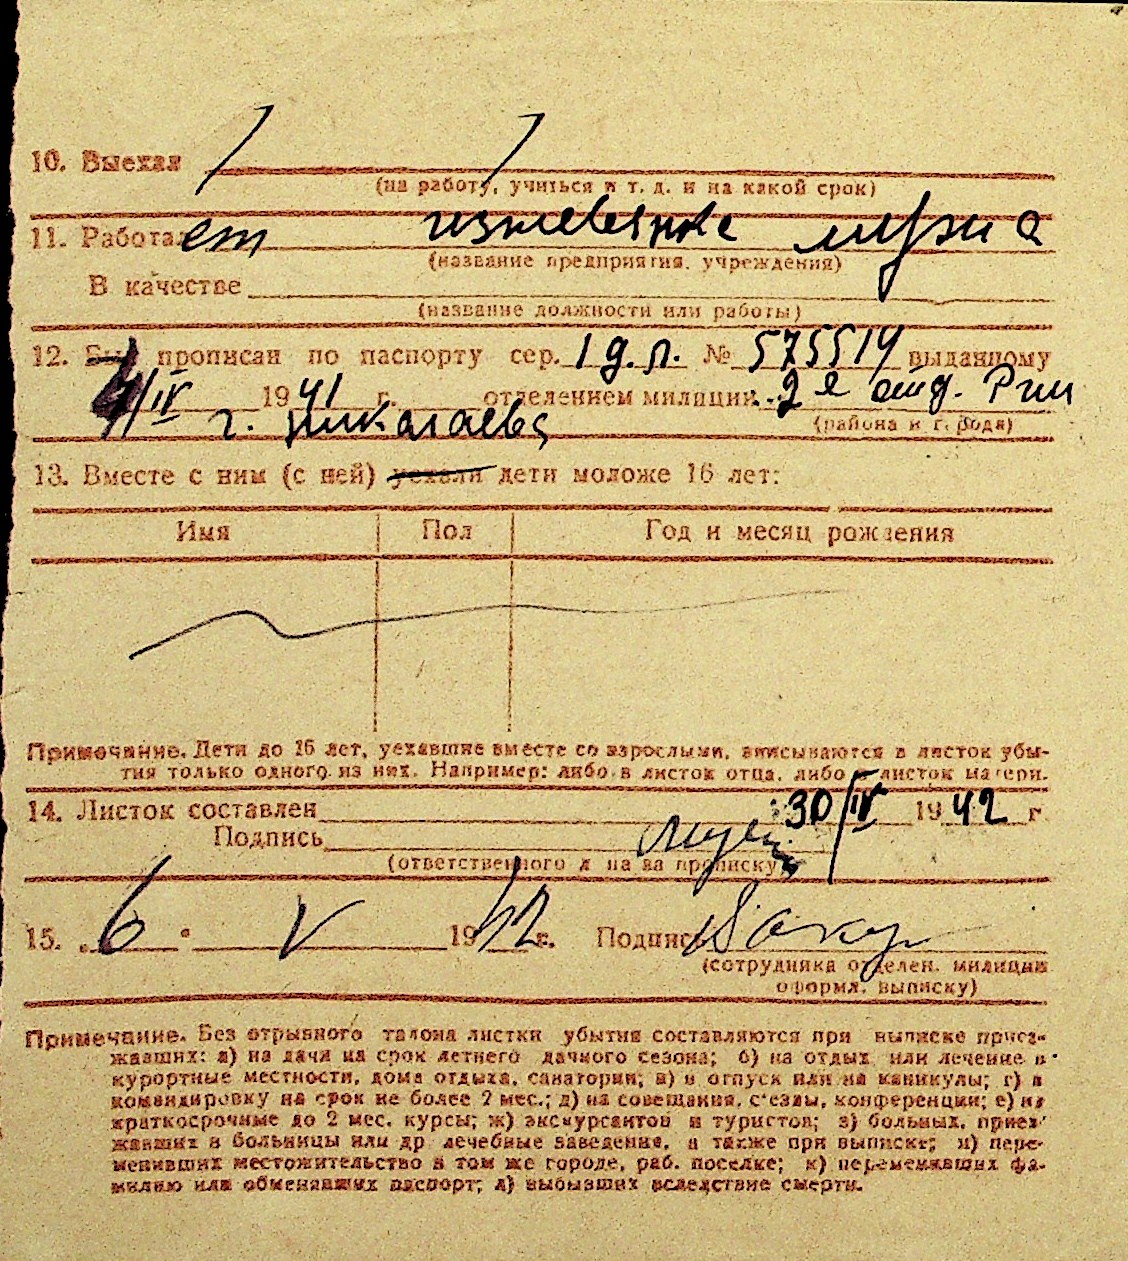 10. Выехал
(на работу, учиться и т. д. и на какой срок)
11. Работает иждевение мужа
(название предприятия, учреждения)
В качестве
(название должности или работы)
12. прописан по паспорту сер. 1 д.л. № 575514 выданному
4/IV 1941 г. отделением милиции 2е отд. Ркм
г. Николаева
(района и города)
13. Вместе с ним (с ней) уехали дети моложе 16 лет:
Имя Пол Год и месяц рождения
Примечание. Дети до 16 лет, уехавшие вместе со взрослыми, вписываются в листок убы-
тия только одного из них. Например: либо в листок отца, либо в листок матери.
14. Листок составлен 30/IV 1942 г
Подпись
(ответственного л на за прописку)
15. 6 V 1942 г. Подпись
(сотрудника отделен. милиции
оформл. выписку)
Примечание. Без отрывного талона листки убытия составляются при выписке приез-
жавших: а) на дачи на срок летнего дачного сезона; б) на отдых или лечение в
курортные местности, дома отдыха, санатории; в) в отпуск или на каникулы; г) в
командировку на срок не более 2 мес.; д) на совещания, с'езды, конференции; е) на
краткосрочные до 2 мес. курсы; ж) экскурсантов и туристов; з) больных, приез-
жавших в больницы или др лечебные заведения, а также при выписке; и) пере-
менивших местожительство в том же городе, раб. поселке; к) переменивших фа-
милию или обменявших паспорт; л) выбывших вследствие смерти.